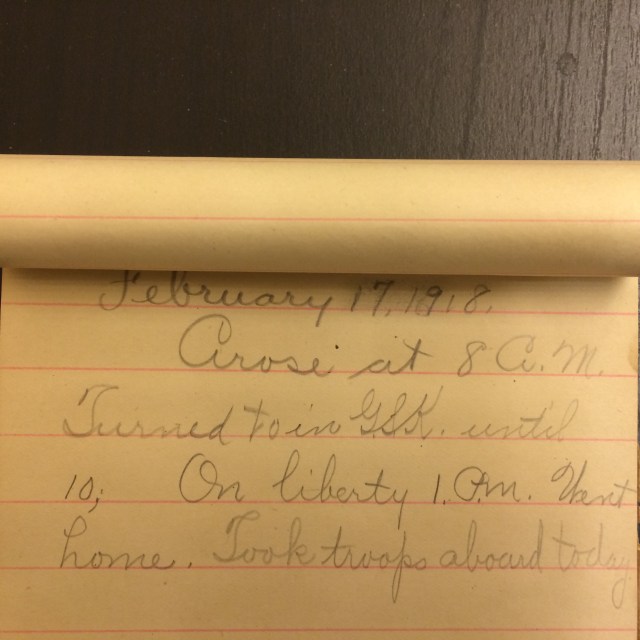 February 17, 1918.
Arose at 8 A.M.
Turned to in GSK. until
10; On liberty 1. P.m. Went
home. Took troops aboard today